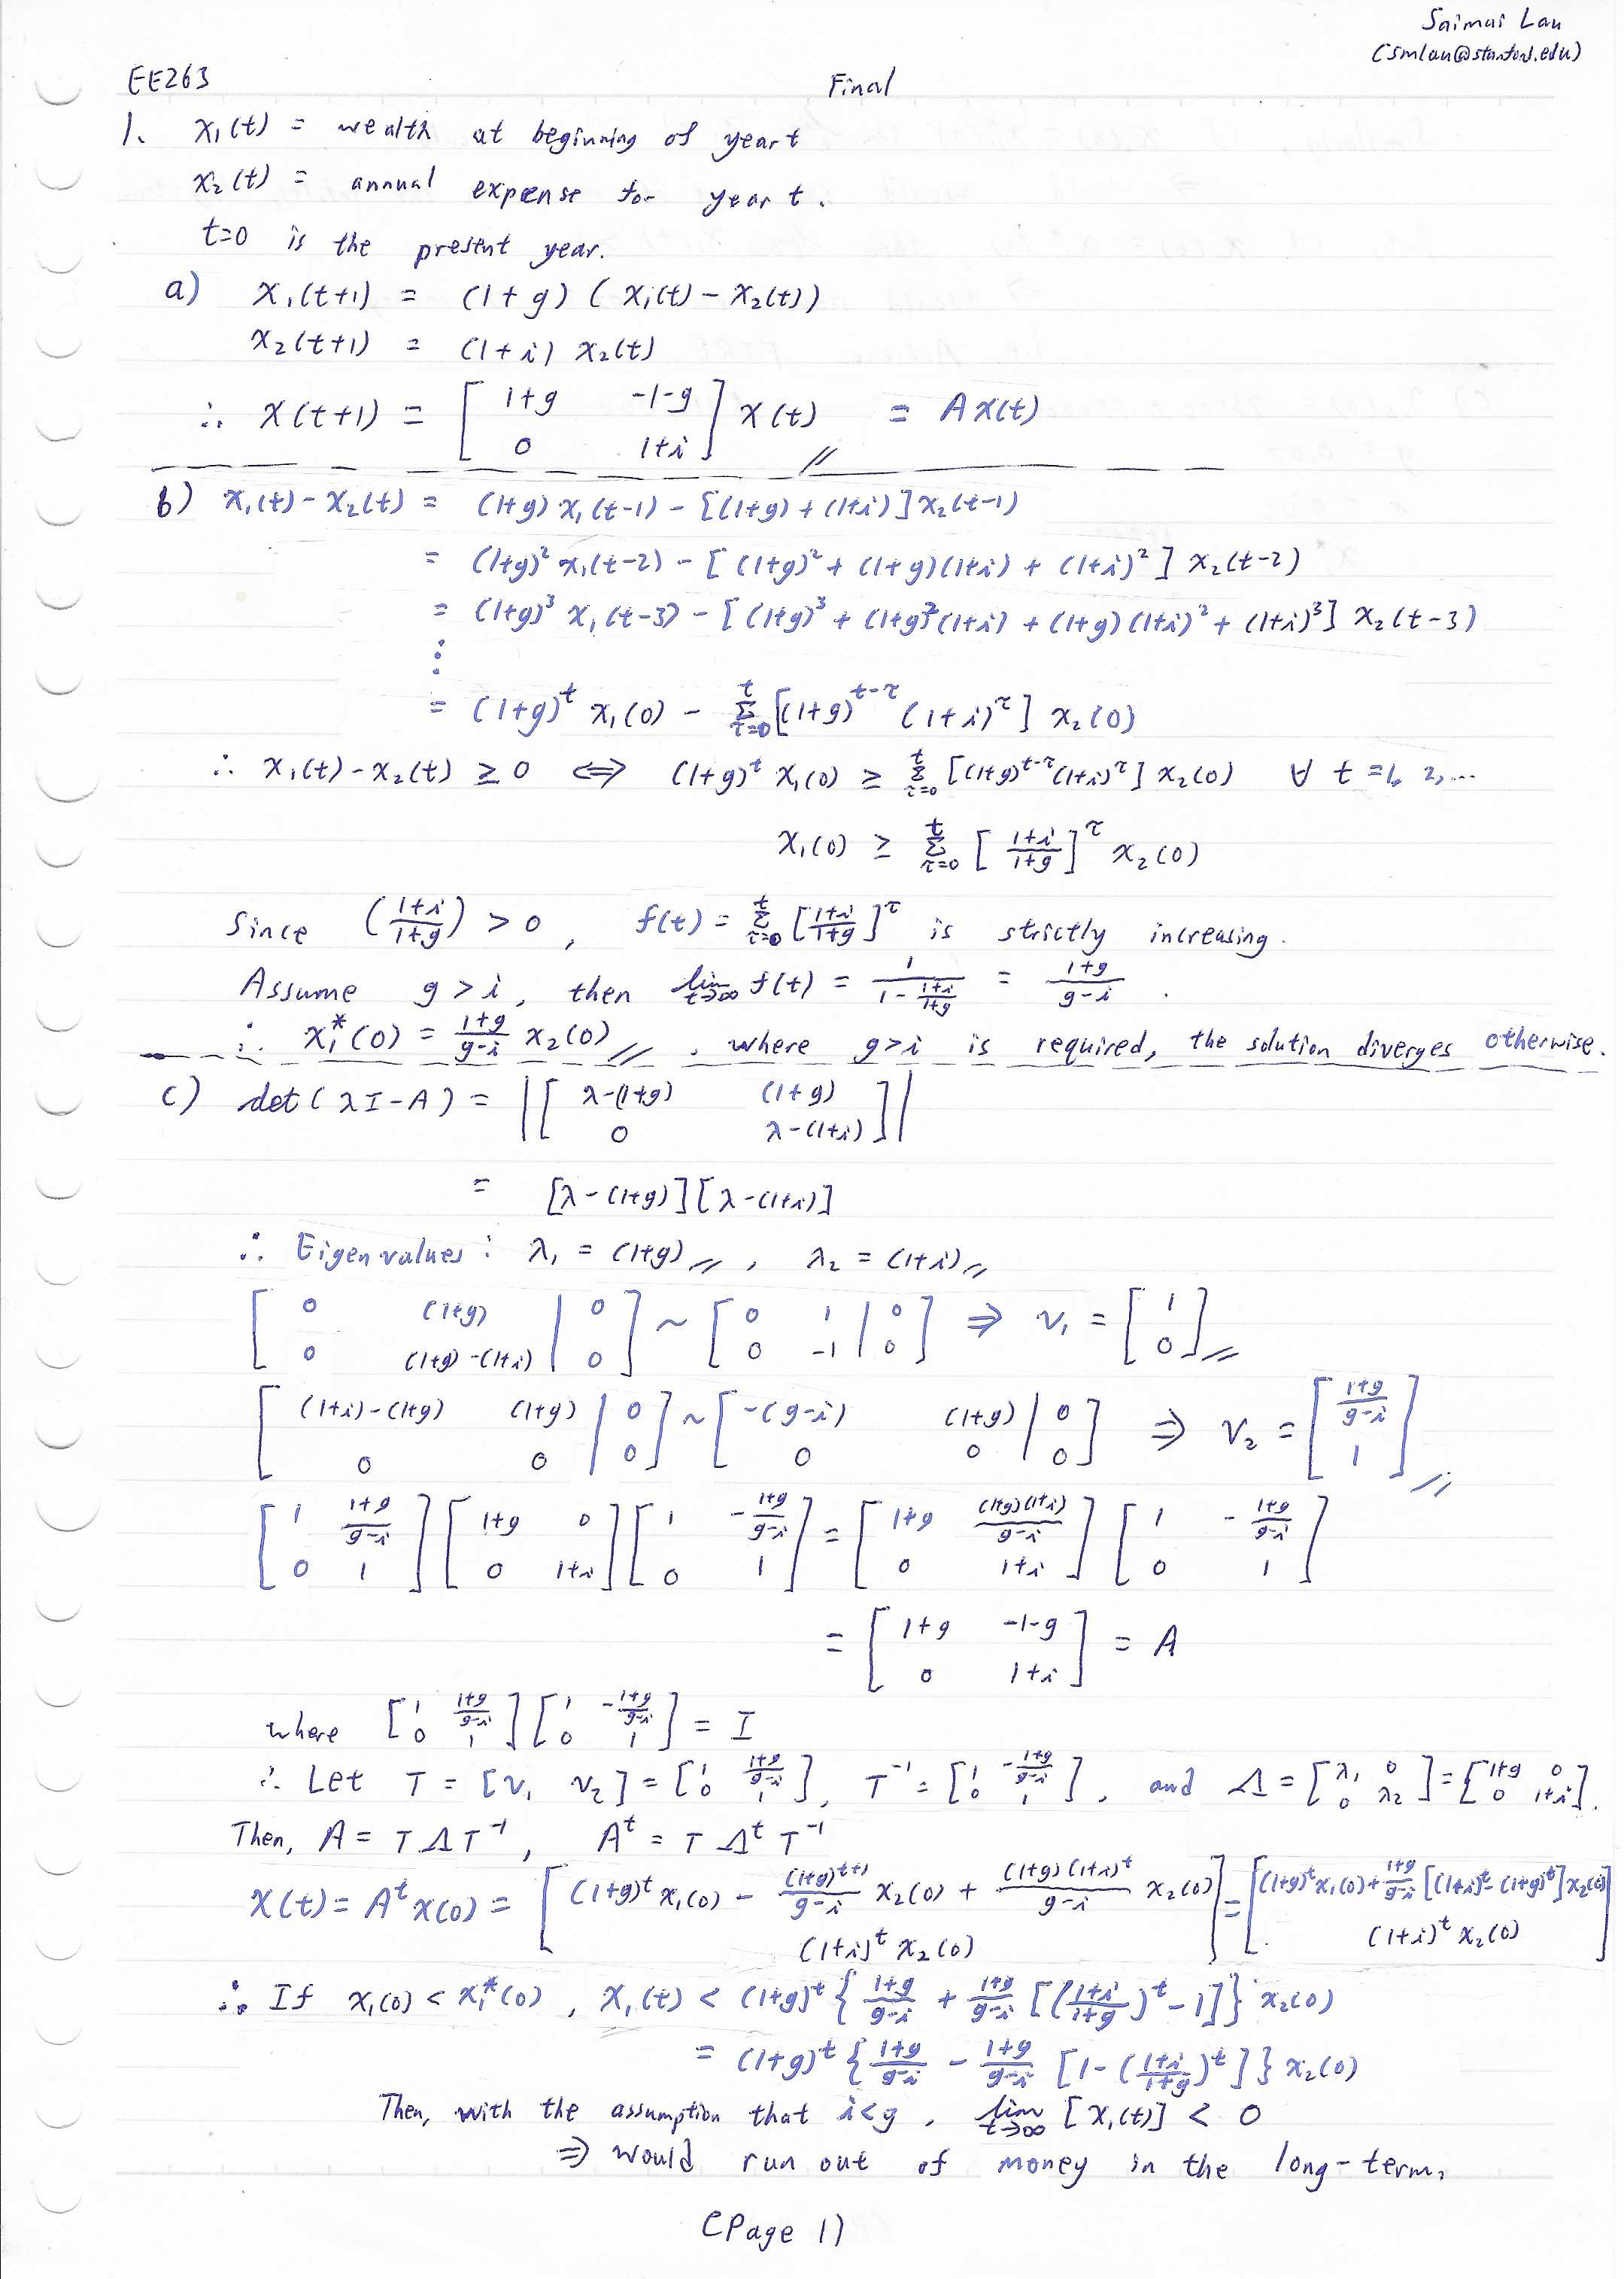 Saimai Lau
(smlau@stanford.edu)
EE263 Final
1. x₁(t) = wealth at beginning of year t
x₂(t) = annual expense for year t.
t=0 is the present year.
a) x₁(t+1) = (1+g) (x₁(t) - x₂(t))
x₂(t+1) = (1+i) x₂(t)
∴ x(t+1) = [1+g -1-g; 0 1+i] x(t) = A x(t)
b) x₁(t) - x₂(t) = (1+g) x₁(t-1) - [(1+g) + (1+i)] x₂(t-1)
= (1+g)² x₁(t-2) - [(1+g)² + (1+g)(1+i) + (1+i)²] x₂(t-2)
= (1+g)³ x₁(t-3) - [(1+g)³ + (1+g)²(1+i) + (1+g)(1+i)² + (1+i)³] x₂(t-3)
⋮
= (1+g)^t x₁(0) - Σ_{τ=0}^{t} [(1+g)^{t-τ} (1+i)^τ] x₂(0)
∴ x₁(t) - x₂(t) ≥ 0 ⟺ (1+g)^t x₁(0) ≥ Σ_{τ=0}^{t} [(1+g)^{t-τ} (1+i)^τ] x₂(0) ∀ t = 1, 2, ...
x₁(0) ≥ Σ_{τ=0}^{t} [(1+i)/(1+g)]^τ x₂(0)
Since ((1+i)/(1+g)) > 0, f(t) = Σ_{τ=0}^{t} [(1+i)/(1+g)]^τ is strictly increasing.
Assume g > i, then lim_{t→∞} f(t) = 1/(1 - (1+i)/(1+g)) = (1+g)/(g-i).
∴ x₁*(0) = (1+g)/(g-i) x₂(0), where g>i is required, the solution diverges otherwise.
c) det(λI - A) = |[λ-(1+g) (1+g); 0 λ-(1+i)]|
= [λ-(1+g)][λ-(1+i)]
∴ Eigenvalues: λ₁ = (1+g), λ₂ = (1+i)
[0 (1+g) | 0; 0 (1+g)-(1+i) | 0] ~ [0 1 | 0; 0 -1 | 0] ⇒ v₁ = [1; 0]
[(1+i)-(1+g) (1+g) | 0; 0 0 | 0] ~ [-(g-i) (1+g) | 0; 0 0 | 0] ⇒ v₂ = [(1+g)/(g-i); 1]
[1 (1+g)/(g-i); 0 1] [1+g 0; 0 1+i] [1 -(1+g)/(g-i); 0 1] = [1+g (1+g)(1+i)/(g-i); 0 1+i] [1 -(1+g)/(g-i); 0 1]
= [1+g -1-g; 0 1+i] = A
where [1 (1+g)/(g-i); 0 1] [1 -(1+g)/(g-i); 0 1] = I
∴ Let T = [v₁ v₂] = [1 (1+g)/(g-i); 0 1], T⁻¹ = [1 -(1+g)/(g-i); 0 1], and Λ = [λ₁ 0; 0 λ₂] = [1+g 0; 0 1+i].
Then, A = TΛT⁻¹, A^t = TΛ^tT⁻¹
x(t) = A^t x(0) = [(1+g)^t x₁(0) - (1+g)^{t+1}/(g-i) x₂(0) + (1+g)(1+i)^t/(g-i) x₂(0); (1+i)^t x₂(0)] = [(1+g)^t x₁(0) + (1+g)/(g-i) [(1+i)^t - (1+g)^t] x₂(0); (1+i)^t x₂(0)]
∴ If x₁(0) < x₁*(0), x₁(t) < (1+g)^t {(1+g)/(g-i) + (1+g)/(g-i) [((1+i)/(1+g))^t - 1]} x₂(0)
= (1+g)^t {(1+g)/(g-i) - (1+g)/(g-i) [1 - ((1+i)/(1+g))^t]} x₂(0)
Then, with the assumption that i<g, lim_{t→∞} [x₁(t)] < 0
⇒ would run out of money in the long-term.
(Page 1)